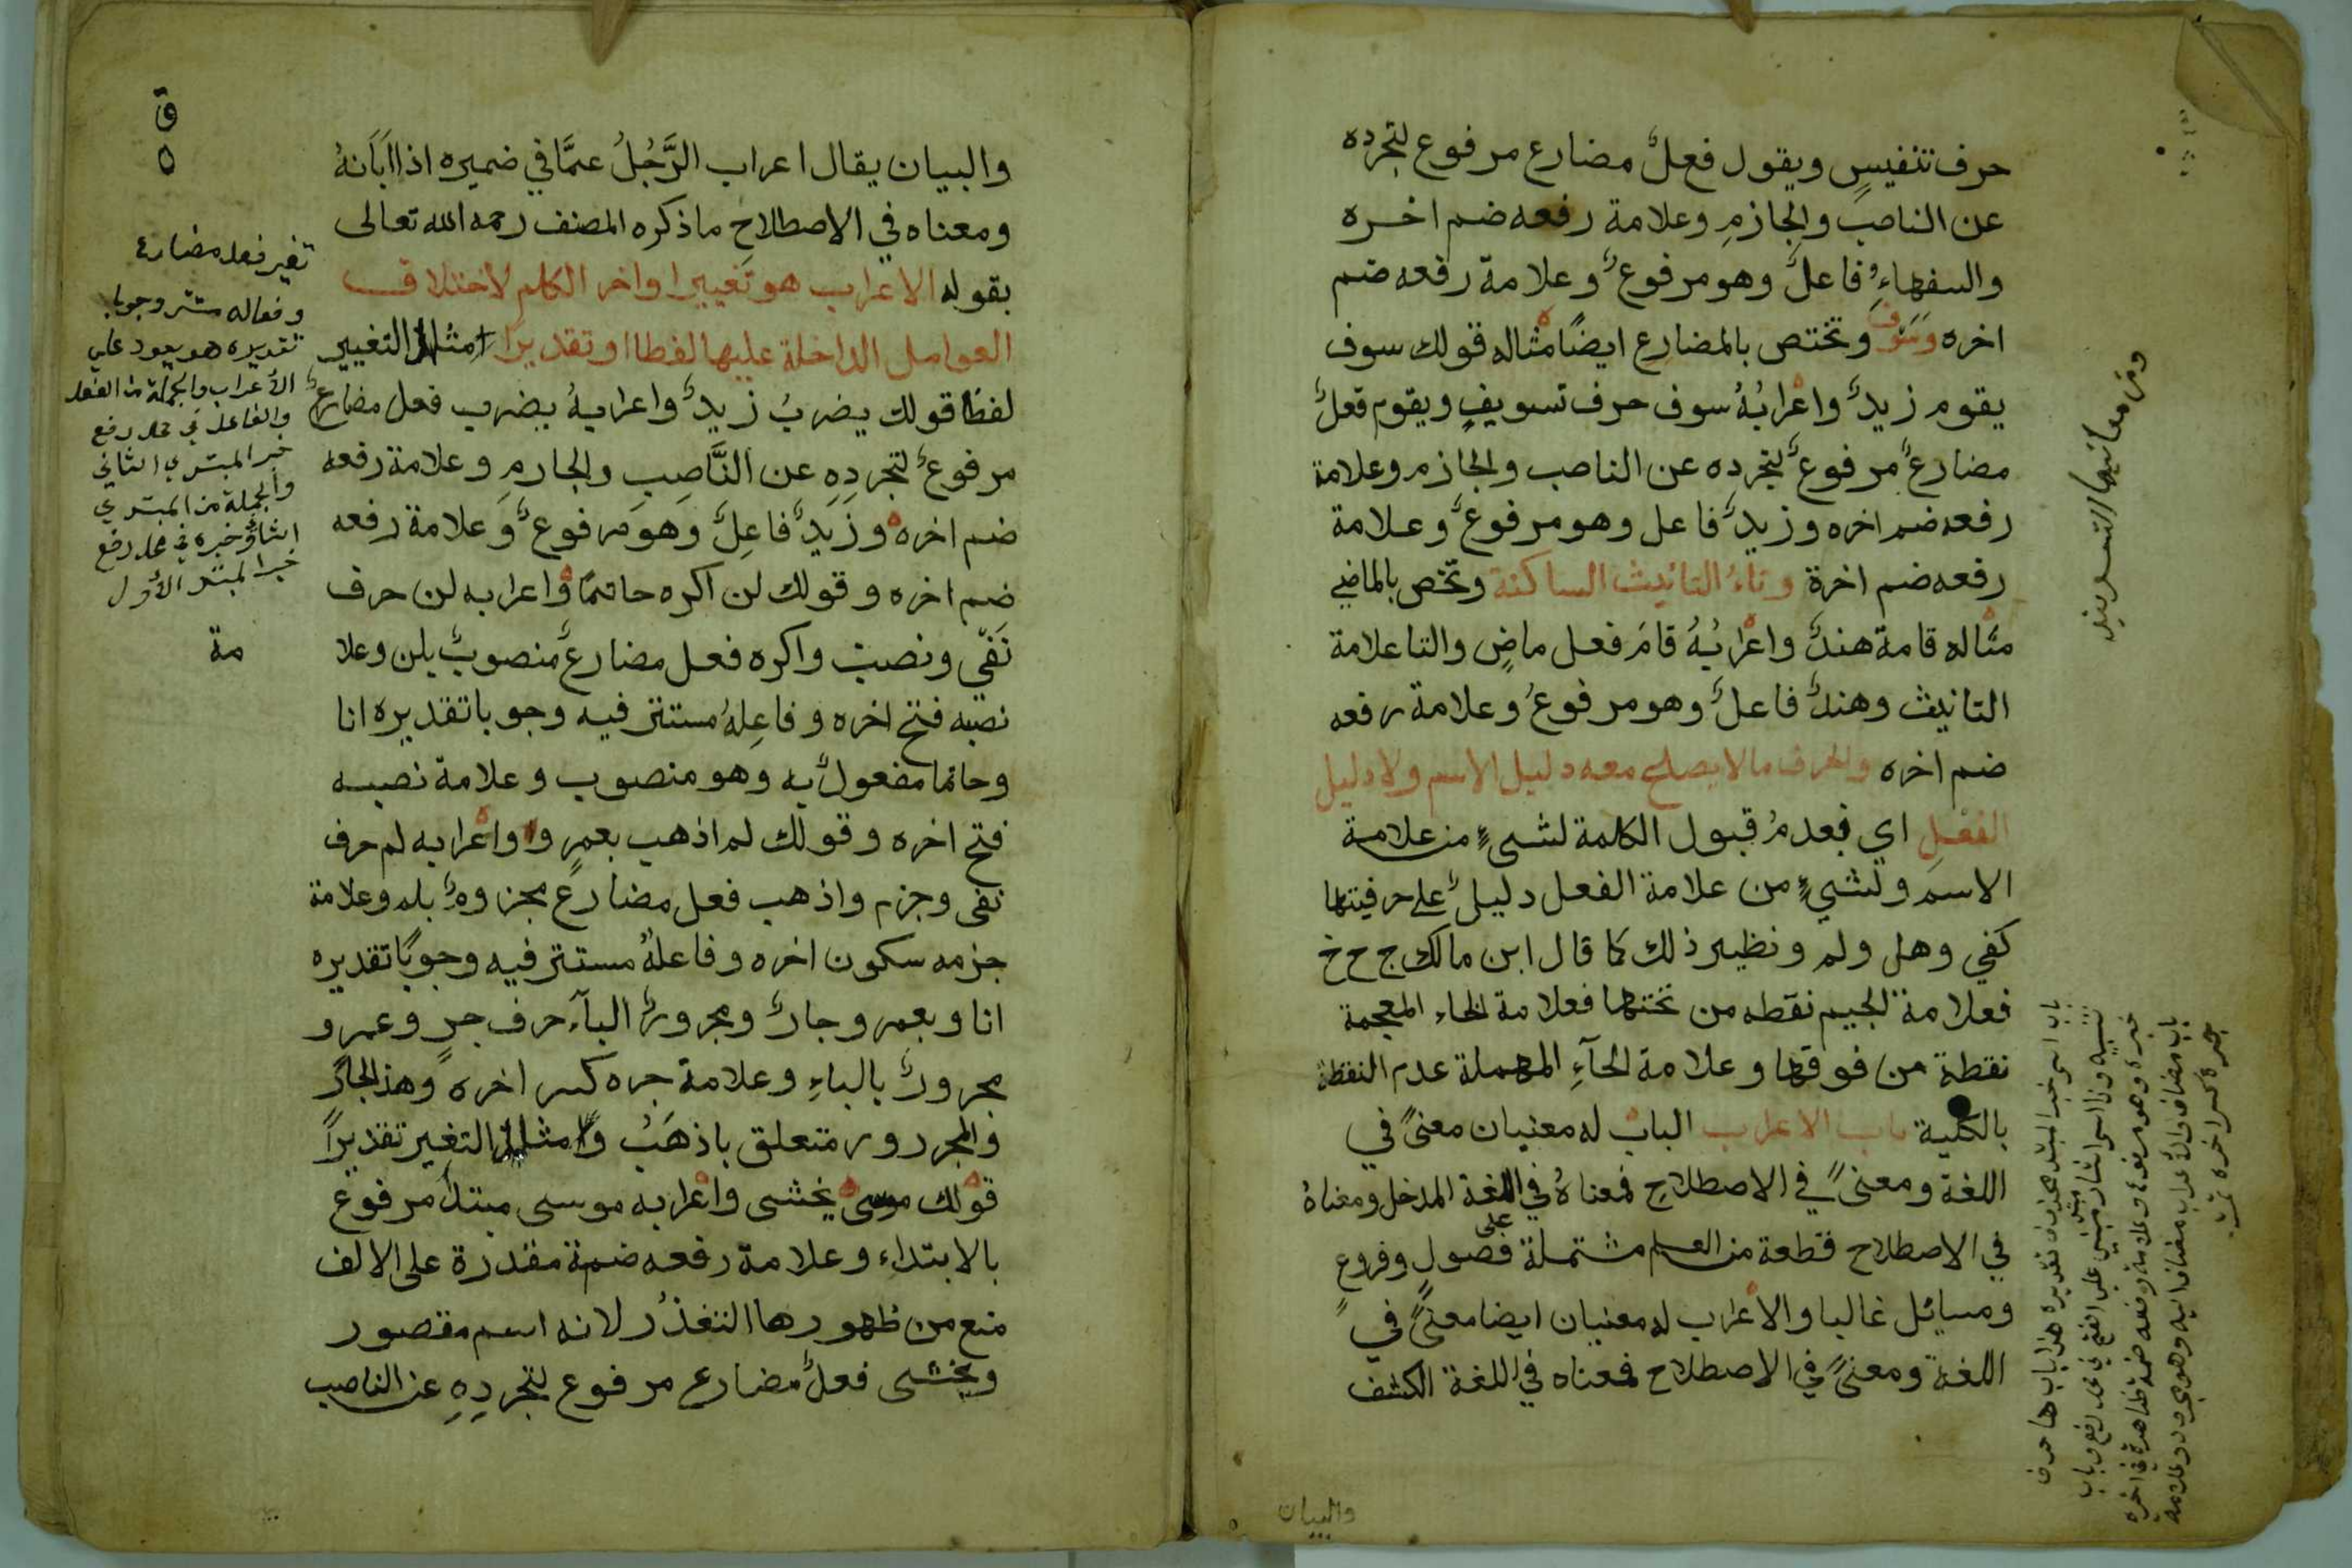 حرف تنفيسٍ ويقول فعلٌ مضارع مرفوع لتجرده
عن الناصب والجازمِ وعلامة رفعه ضم اخره
والسفهاءُ فاعلٌ وهو مرفوعٌ وعلامة رفعه ضم
اخره وسَوْفَ وتختص بالمضارع ايضًا مثاله قولك سوف
يقوم زيدٌ واعرابُهُ سوف حرف تسويفٍ ويقوم فعلٌ
مضارعٌ مرفوعٌ لتجرده عن الناصب والجازم وعلامة
رفعه ضم اخره وزيدٌ فاعل وهو مرفوعٌ وعلامة
رفعه ضم اخرة وتاءُ التانيث الساكنة وتختص بالماضي
مثاله قامة هندٌ واعرابُهُ قامَ فعل ماضٍ والتا علامة
التانيث وهندٌ فاعلٌ وهو مرفوعُ وعلامة رفعه
ضم اخره والحرف ما لا يصلح معه دليل الاسم ولا دليل
الفعلِ اي فعدمُ قبول الكلمة لشىءٍ من علامة
الاسم ولشيءٍ من علامة الفعل دليلٌ على حرفيتها
كفي وهل ولم ونظير ذلك كما قال ابن مالك ج ح خ
فعلامة الجيم نقطه من تحتها فعلامة الخاء المعجمة
نقطة من فوقها وعلامة الحآءِ المهملة عدم النقطة
بالكلية باب الاعراب الباب له معنيان معنىً في
اللغة ومعنىً في الاصطلاحِ فمعناهُ في اللغة المدخل ومعناهُ
في الاصطلاح قطعة من العلم مشتملة على فصول وفروع
ومسائل غالبا والاعراب له معنيان ايضا معنىً في
اللغة ومعنىً في الاصطلاح فمعناه في اللغة الكشف
والبيان
ومن معانيها التسويف
ق
٥
والبيان يقال اعراب الرَّجُلُ عمَّا في ضميره اذا ابَانهُ
ومعناه في الاصطلاحِ ما ذكره المصنف رحمه الله تعالى
بقوله الاعراب هو تغيير اواخر الكلم لاختلاف
العوامل الداخلة عليها لفظا او تقديرًا مثال التغيير
لفظًا قولك يضربُ زيدٌ واعرابهُ يضرب فعل مضارعٌ
مرفوعٌ لتجردِهِ عن النَّاصِبِ والجازمِ وعلامة رفعه
ضم اخره وزَيدٌ فاعِلٌ وهو مرفوعٌ وعلامة رفعه
ضم اخره وقولك لن اكره حاتمًا واعرابه لن حرف
نَفْي ونصب واكره فعل مضارعٌ منصوبٌ بلن وعلا
مة
نصبه فتح اخره وفاعِلهُ مستتر فيه وجوبا تقديره انا
وحاتما مفعولٌ به وهو منصوب وعلامة نصبه
فتح اخره وقولك لم اذهب بعمرٍو واعرابه لم حرف
نفى وجزم واذهب فعل مضارع مجزومٌ بلم وعلامة
جزمه سكون اخره وفاعلهُ مستتر فيه وجوبًا تقديره
انا وبعمرو جارٌ ومجرورٌ البآء حرف جرٍ وعمرو
مجرورٌ بالباءِ وعلامة جره كسر اخره وهذا الجارُ
والمجرور متعلق باذهَبُ ومثال التغير تقديراً
قولك موسى يخشى واعرابه موسى مبتدأ مرفوع
بالابتداء وعلامة رفعه ضمة مقدرة على الالف
منع من ظهورها التعذُر لانه اسم مقصور
ويخشى فعلٌ مضارع مرفوع لتجردِهِ عن الناصب
تغير فعل مضارع
وفعاله مستتر وجوبا
تقديره هو يعود على
الأعراب والجملة من الفعل
والفاعل في محل رفع
خبر المبتدي الثاني
والجملة من المبتدي
الثان وخبره في محل رفع
خبر المبتد الأول